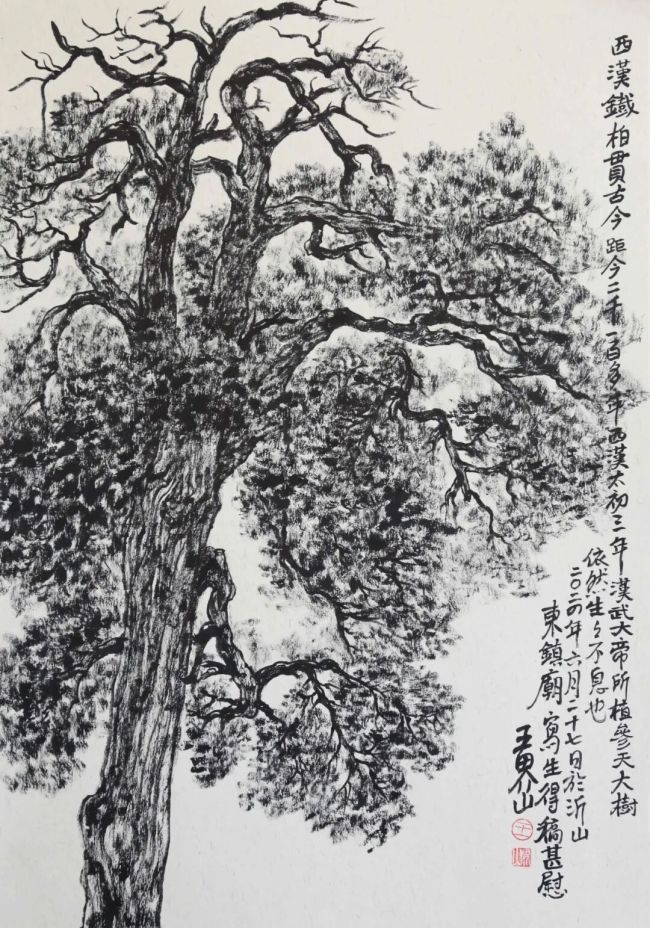 西漢鐵柏貫古今 距今二千一百多年西漢太初三年漢武大帝所植參天大樹
依然生々不息也
二〇二四年六月二十七日於沂山
東鎮廟寫生得稿甚慰
王界山